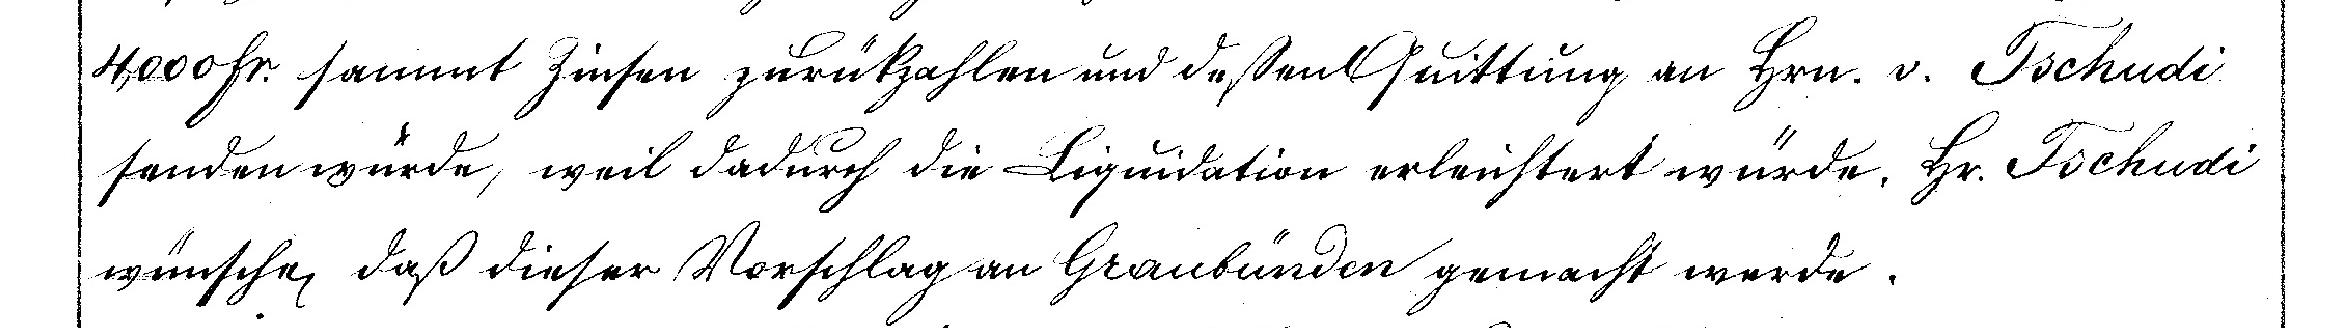 4000 Fr. sammt Zinsen zurükzahlen und deßen Quittung an Hrn. v. Tschudi
senden würde, weil dadurch die Liquidation erleichtert würde. Hr. Tschudi
wünsche, daß dieser Vorschlag an Graubünden gemacht werde.